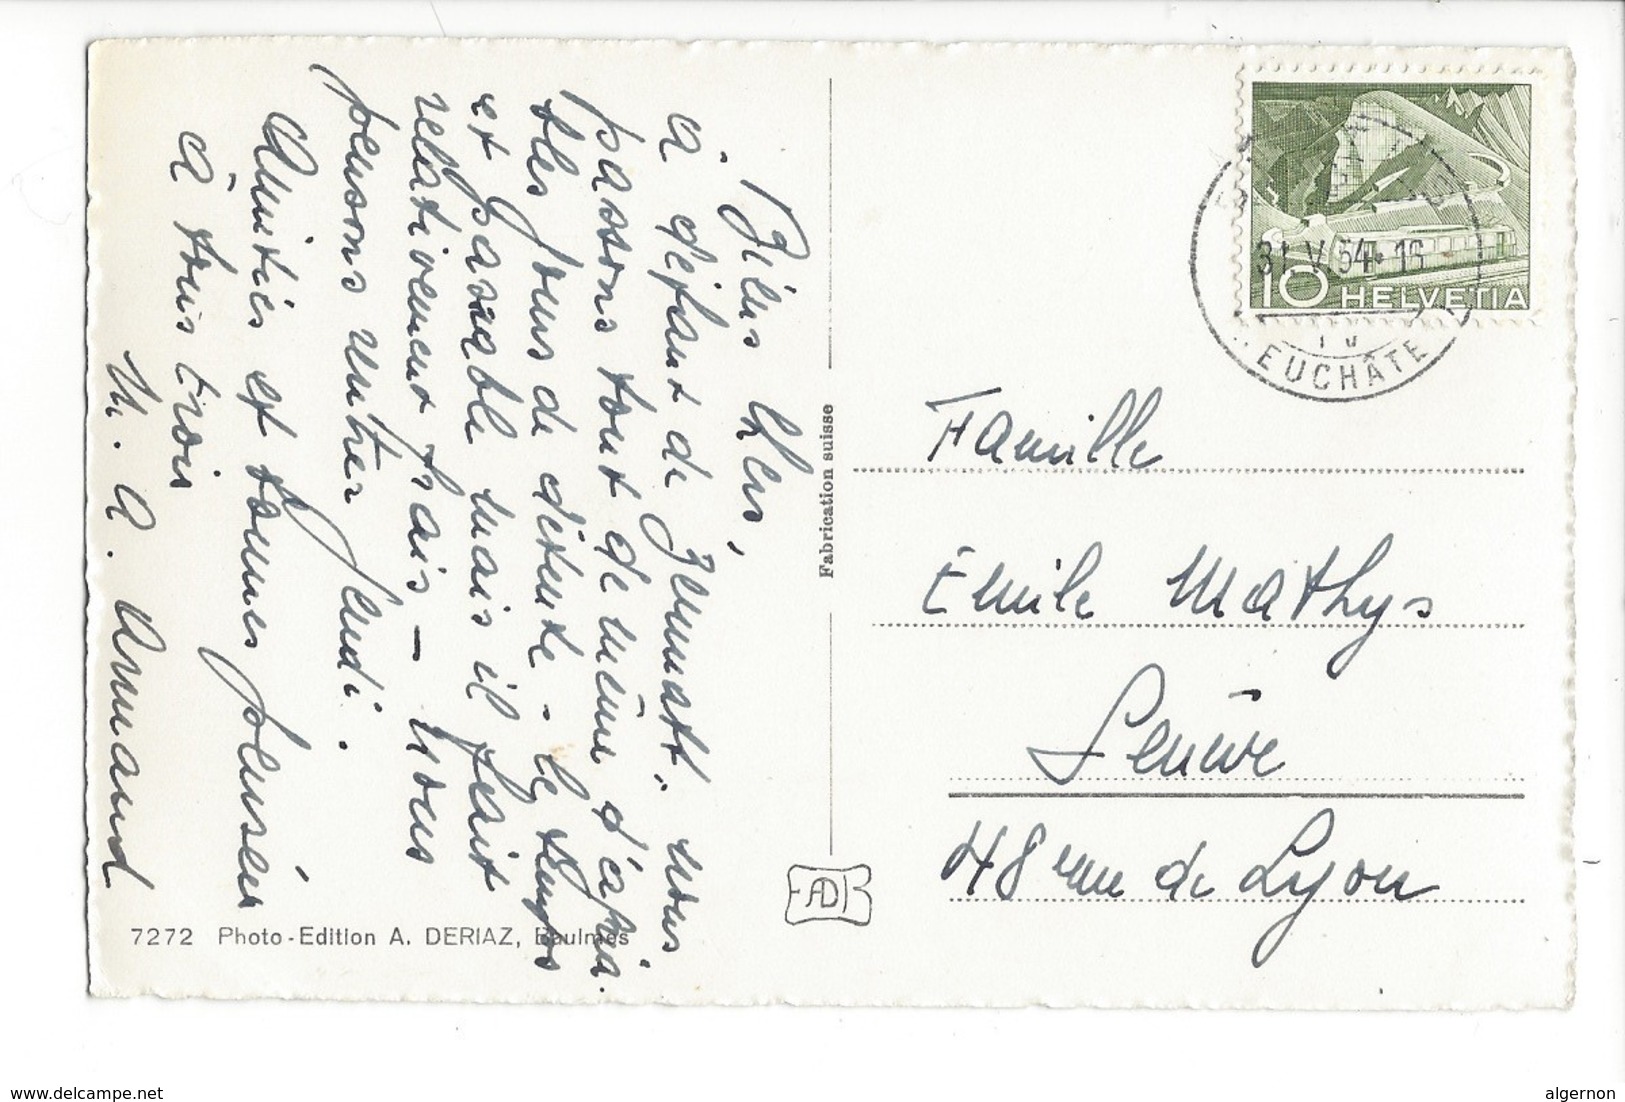 Bien chers,
à défaut de Zermatt, nous
passons tout de même d'agréa-
bles jours de détente - le temps
et passable mais il fait
relativement frais - nous
pensons rentrer jeudi.
Amitiés et bonnes pensées
à tous trois
A. Armand
7272 Photo-Edition A. DERIAZ, Baulmes
Fabrication suisse
AD
31 V 54
EUCHÂTE
10 HELVETIA
Famille
Emile Mathys
Genève
48 rue de Lyon
delcampe.net
algernon